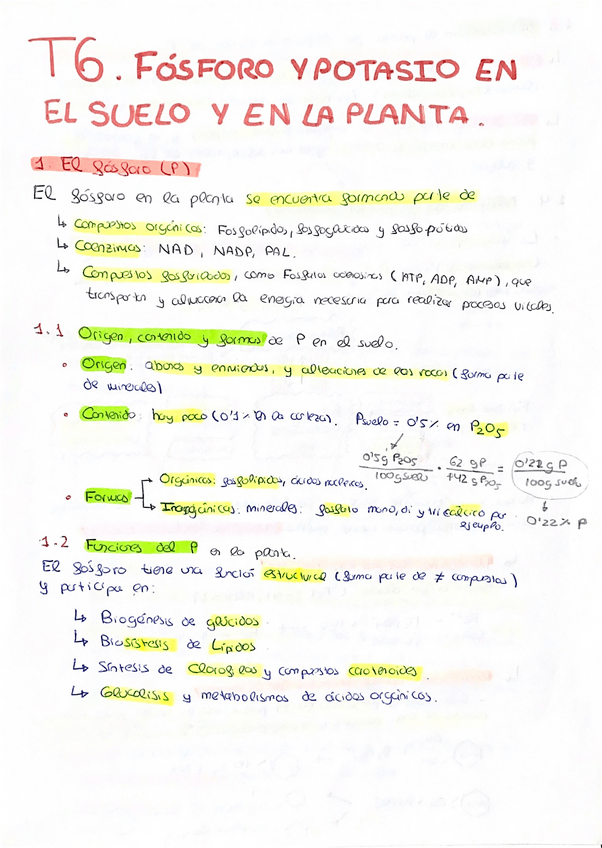 T6. FÓSFORO Y POTASIO EN
EL SUELO Y EN LA PLANTA.
1. El fósforo (P)
El fósforo en la planta se encuentra formando parte de
↳ Compuestos orgánicos: Fosfolípidos, fosfoglúcidos y fosfopótidos
↳ Coenzimas: NAD, NADP, PAL.
↳ Compuestos fosforilados, como Fosfatos adenosinas (ATP, ADP, AMP), que
transportan y almacenan la energía necesaria para realizar procesos vitales.
1.1 Origen, contenido y formas de P en el suelo.
• Origen: abonos y enmiendas, y alteraciones de las rocas (forma parte
de minerales)
• Contenido: hay poco (0'1% en la corteza). Psuelo = 0'5% en P2O5
0'5g P2O5 / 100g suelo · 62 gP / 142 g P2O5 = 0'22 g P / 100g suelo
↓
0'22% P
• Formas
→ Orgánicas: fosfolípidos, ácidos nucleicos.
→ Inorgánicas: minerales: fosfato mono, di y tricálcico por
ejemplo.
1.2 Funciones del P en la planta.
El fósforo tiene una función estructural (forma parte de ≠ compuestos)
y participa en:
↳ Biogénesis de glúcidos.
↳ Biosístesis de Lípidos
↳ Síntesis de Clorofilas y compuestos carotenoides.
↳ Glucolisis y metabolismos de ácidos orgánicos.